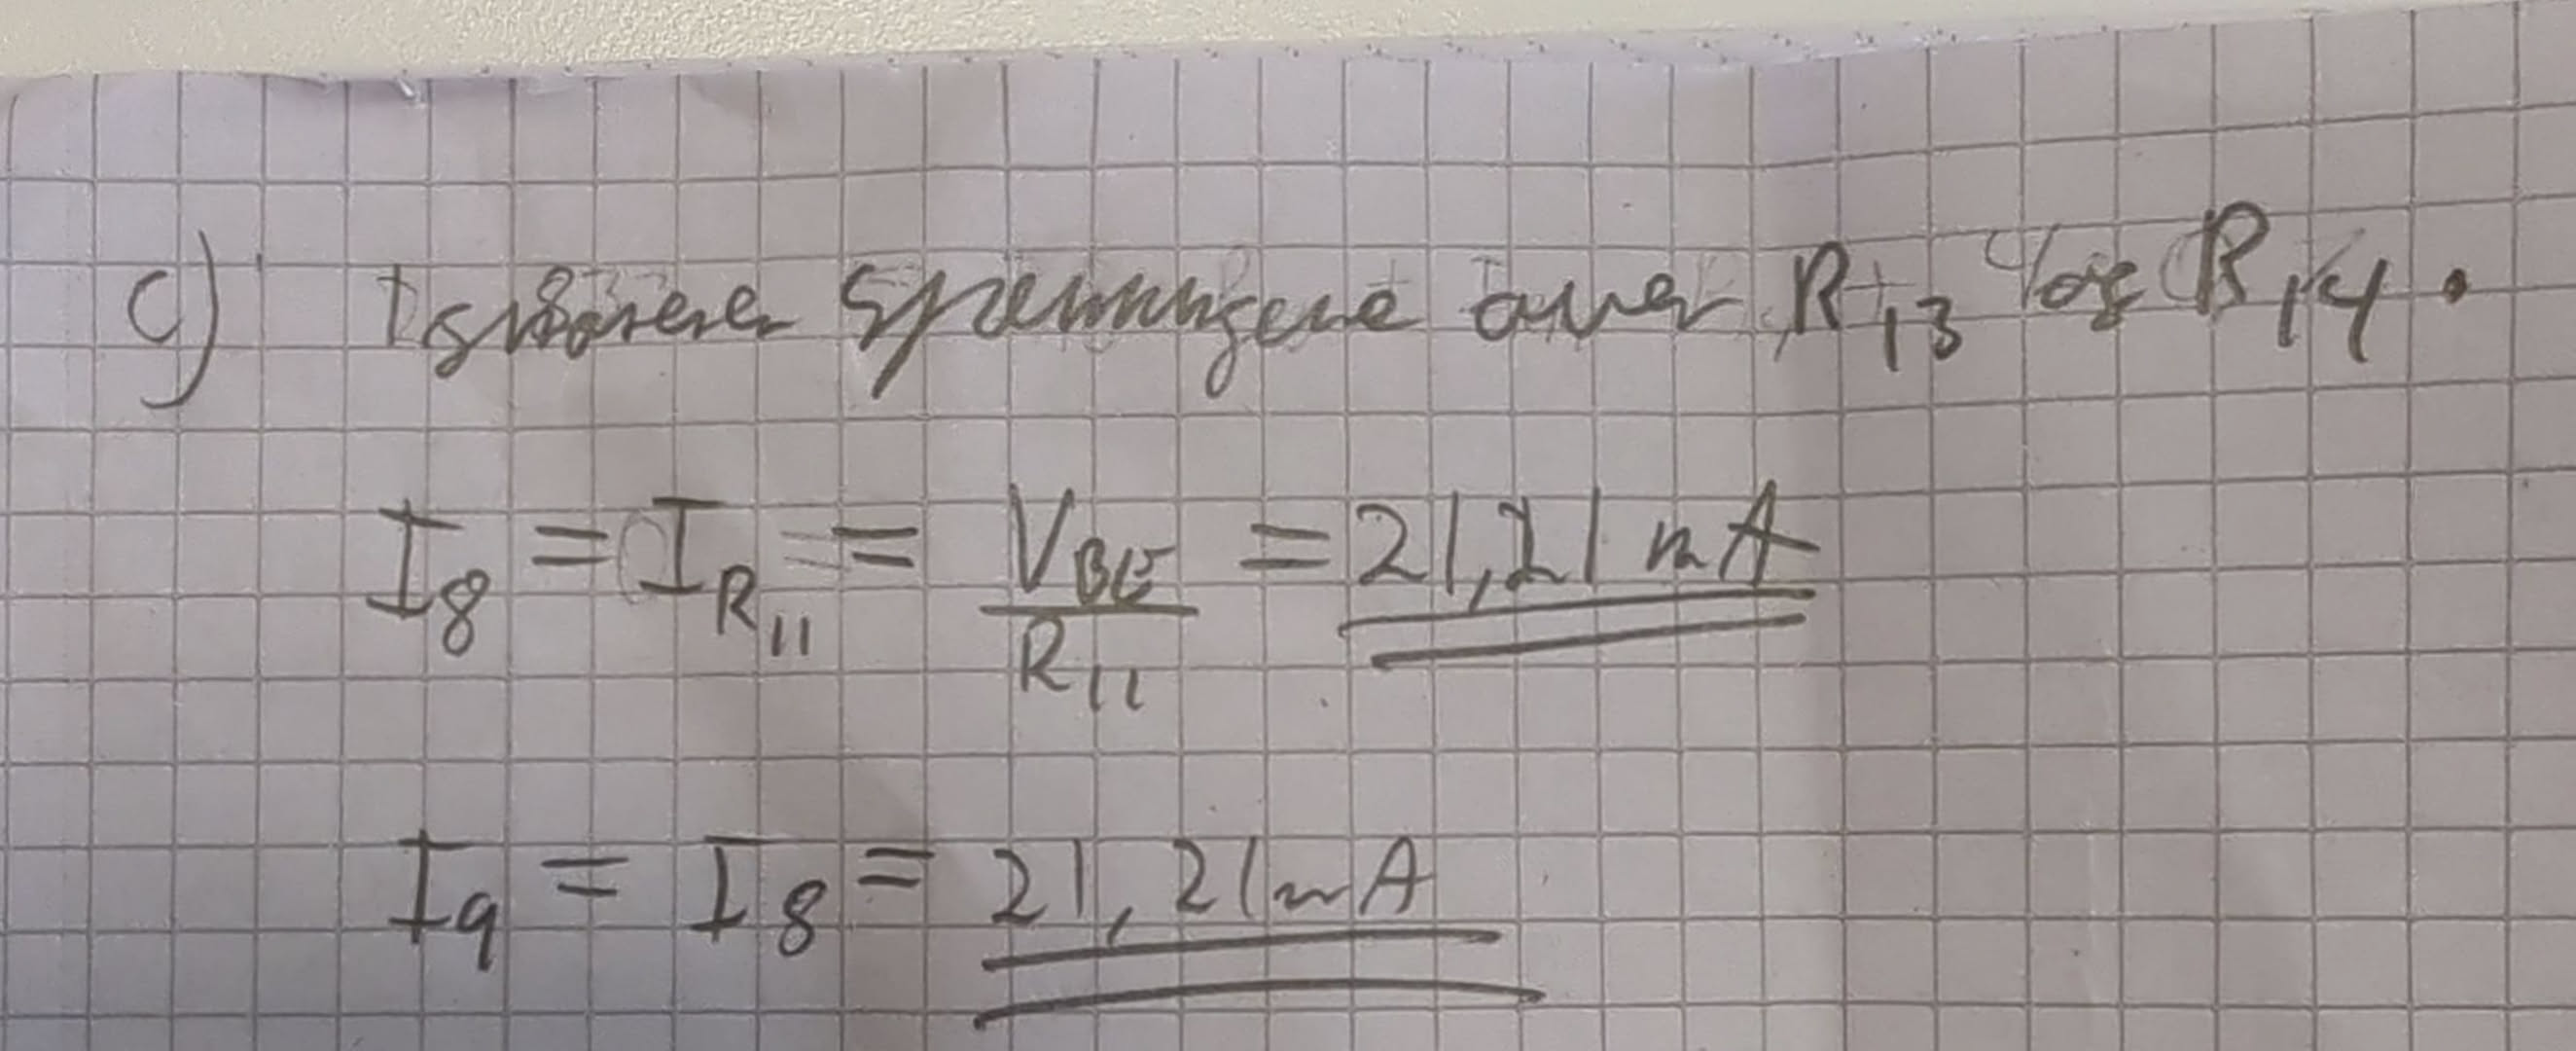 c) Ignorerer spenningene over R13 og R14.
I8 = IR11 = VBE / R11 = 21,21 mA
I9 = I8 = 21,21 mA